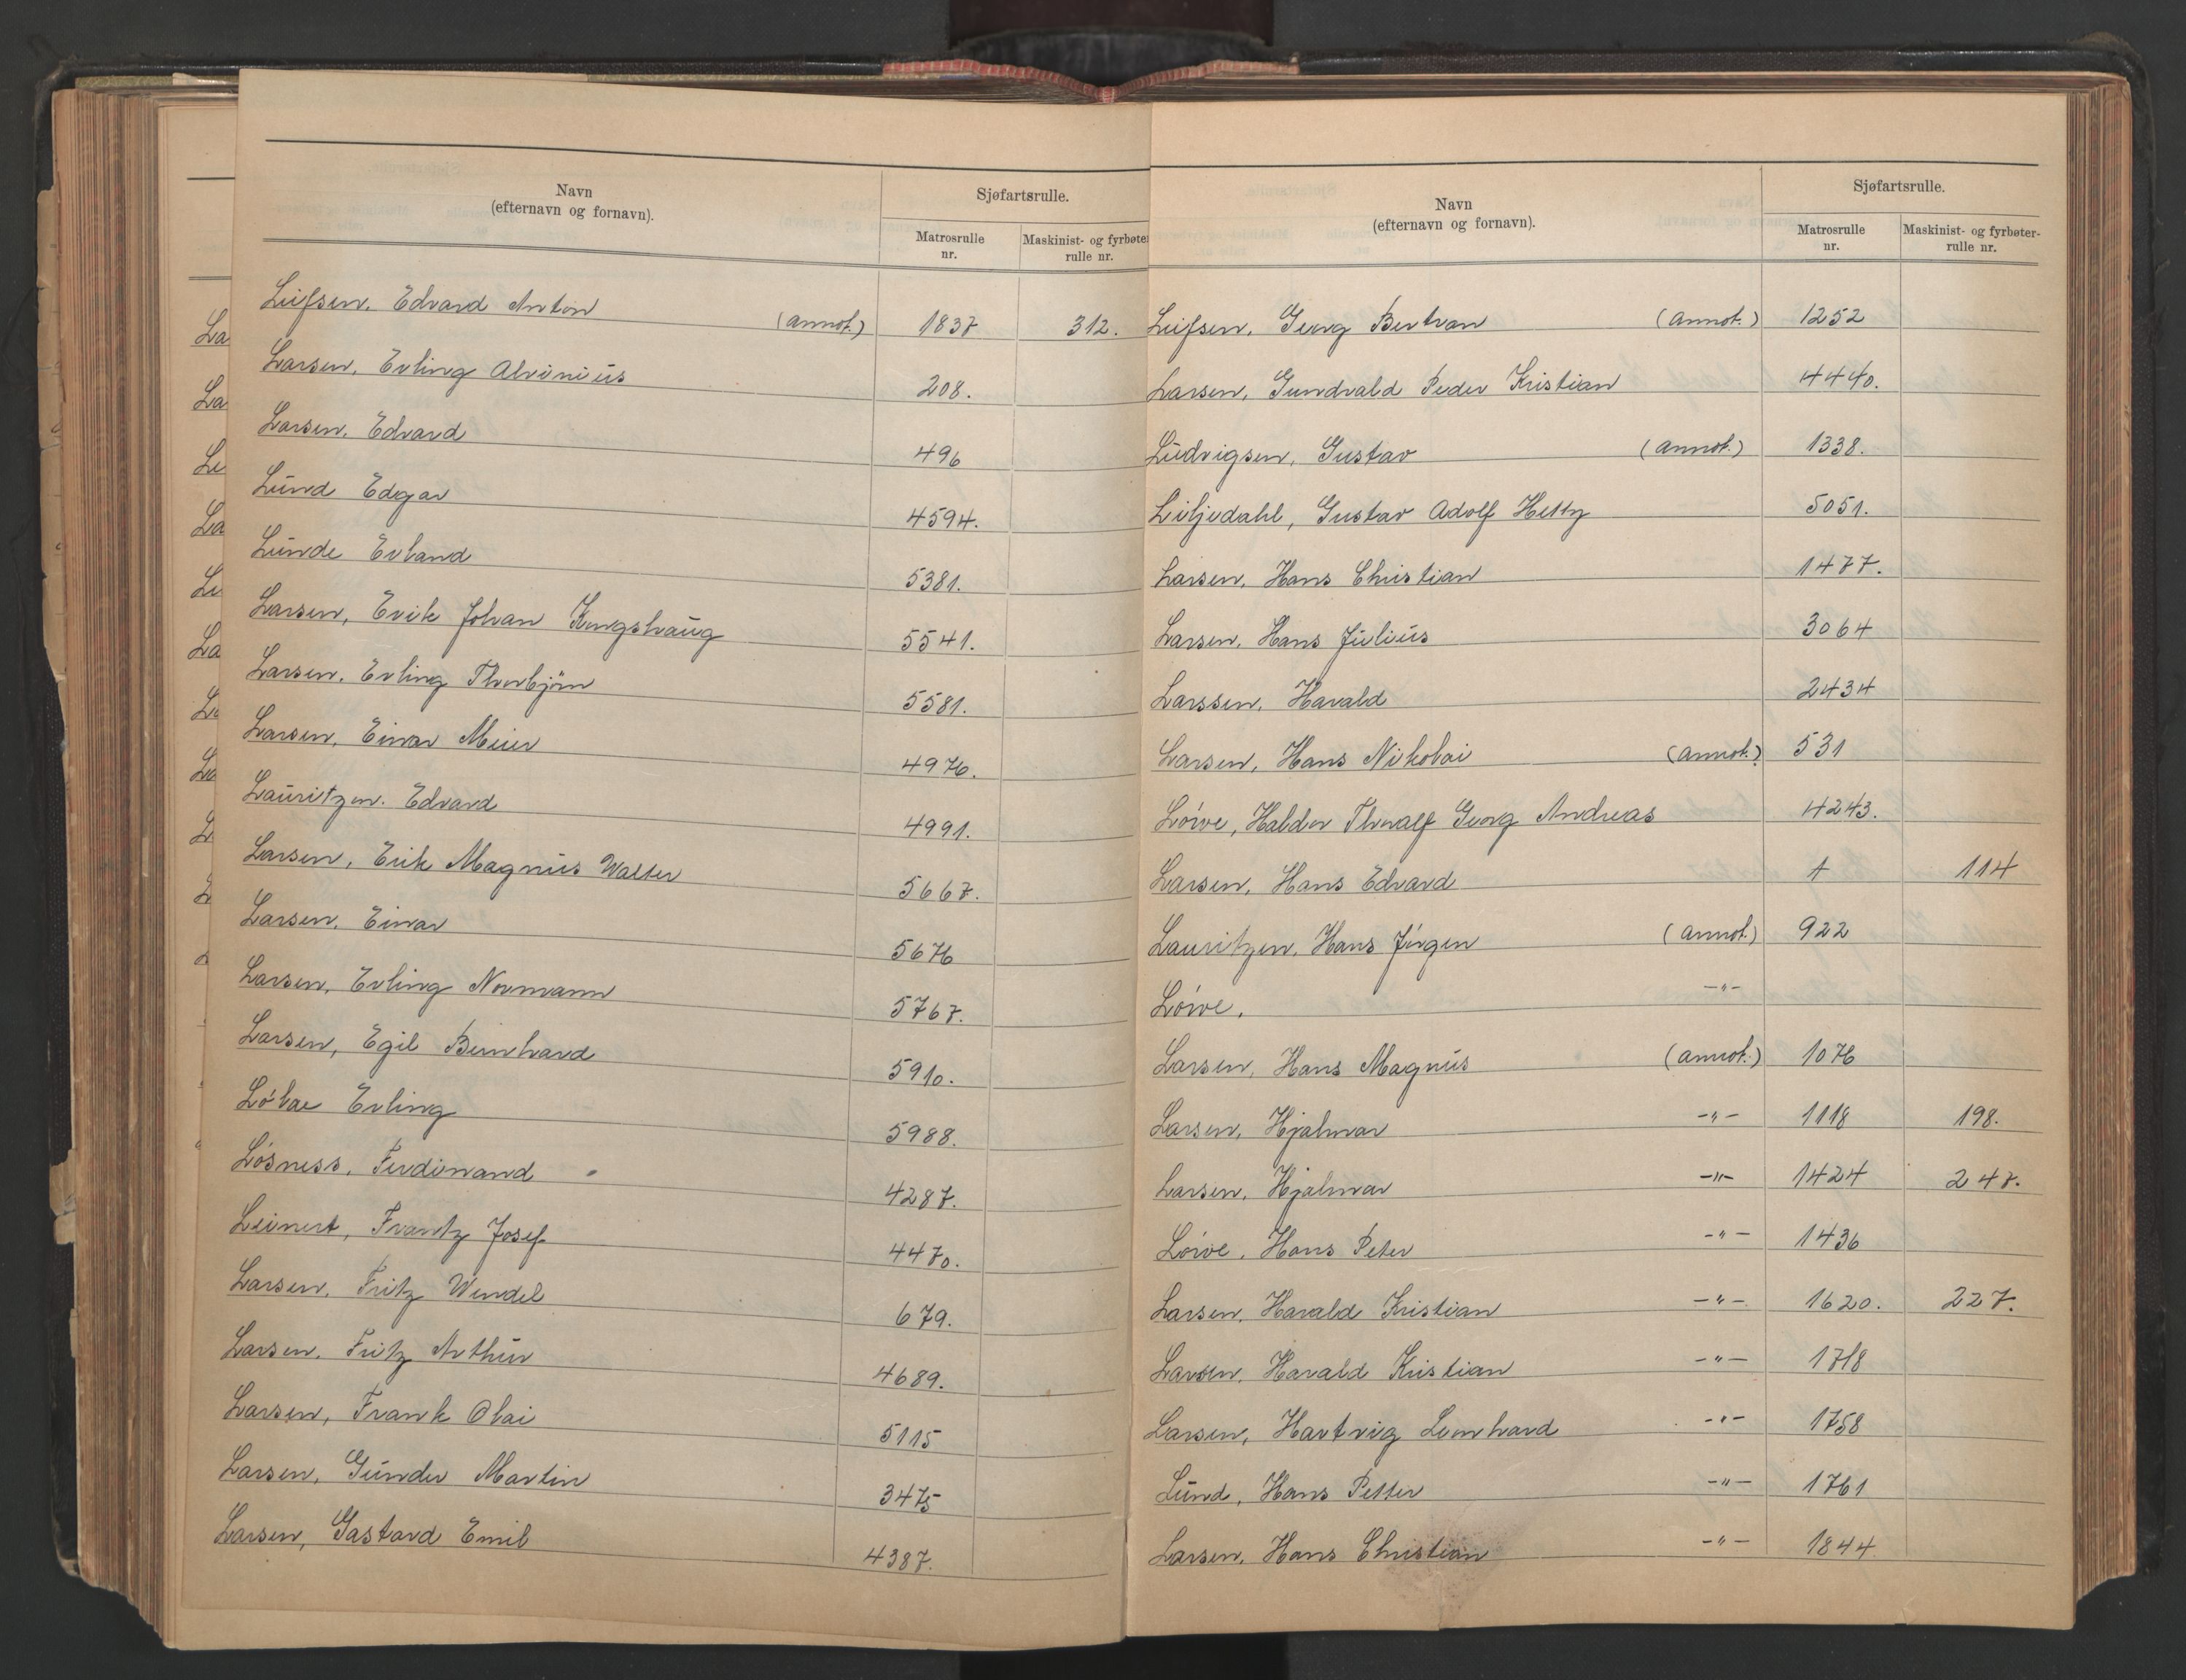 Navn
(efternavn og fornavn).
Sjøfartsrulle.
Matrosrulle
nr.
Maskinist- og fyrbøter
rulle nr.
Leifsen, Edvard Anton (annot.) 1837 312.
Larsen, Erling Alvinius 208.
Larsen, Edvard 496
Lund Edgar 4594.
Lunde Erland 5381.
Larsen, Erik Johan Kongshaug 5541.
Larsen, Erling Thorbjørn 5581.
Larsen, Einar Meier 4976.
Lauritzen. Edvard 4991.
Larsen, Erik Magnus Walter 5667.
Larsen, Einar 5676
Larsen, Erling Normann 5767.
Larsen, Egil Bernhard 5910.
Erling 5988.
Løsness, Ferdinand 4287.
Leinert, Frantz Josef 4470.
Larsen, Fritz Wendel 679.
Larsen, Fritz Arthur 4689.
Larsen, Frank Olai 5115
Larsen, Gunder Martin 3475
Larsen, Gastard Emil 4387.
La
La
Le
La
Lu
La
La
Navn
(efternavn og fornavn).
Sjøfartsrulle.
Matrosrulle
nr.
Maskinist- og fyrbøter-
rulle nr.
Leifsen, Georg Bertran (annot.) 1252
Larsen, Gundvald Peder Kristian 4440.
Ludvigsen, Gustav (annot.) 1338.
Liljedahl, Gustav Adolf 5051.
Larsen, Hans Christian 1477.
Larsen, Hans Julius 3064
Larssen, Harald 2434
Larsen, Hans Nikolai (annot.) 531
Løvve, Haldor Thoralf Georg Andreas 4243.
Larsen, Hans Edvard 1 114
Lauritzen, Hans Jørgen (annot.) 922
Løvve, -"-
Larsen, Hans Magnus (annot.) 1076
Larsen, Hjalmar -"- 1118 198.
Larsen, Hjalmar -"- 1424 247.
Løvve, Hans Peter -"- 1436
Larsen, Harald Kristian -"- 1620. 227.
Larsen, Harald Kristian -"- 1718
Larsen, Hartvig Leonhard -"- 1758
Lund, Hans Petter -"- 1761
Larsen, Hans Christian -"- 1844